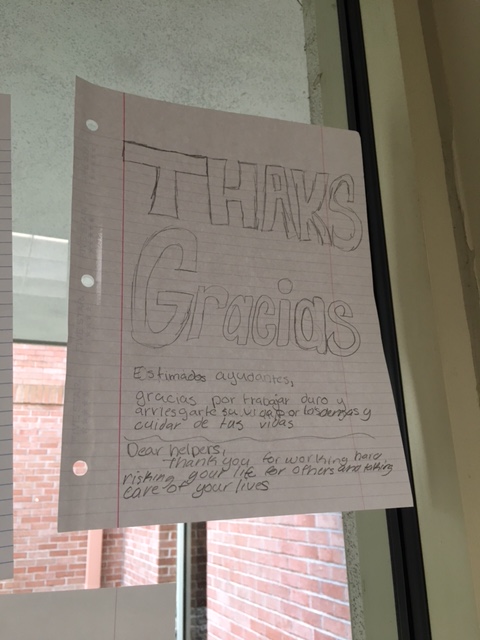 THAKS
Gracias
Estimados ayudantes,
gracias por trabajar duro y
arriesgarte su vida por los demas y
cuidar de tus vidas
Dear helpers,
thank you for working hard
risking your life for others and taking
care of your lives